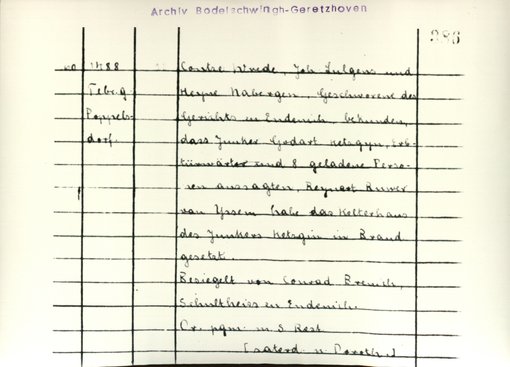 Archiv Bodelschwingh-Geretzhoven
286
60 1488
Febr. 9
Poppels-
dorf.
Contze Wrede, Joh. Julgens und
Heyne Nabergen, Geschworene des
Gerichts in Endenich, bekunden,
dass Junker Godart Ketsgyn, Erb-
türwärter und 8 geladene Perso-
nen aussagten, Reynart Ruwer
van Yssem habe das Kelterhaus
des Junkers Ketsgin in Brand
gesetzt.
Besiegelt von Conrad Bremich,
Schultheiss in Endenich.
Or. pgm. m. S. Rest
(saterd. n. Doroth.)